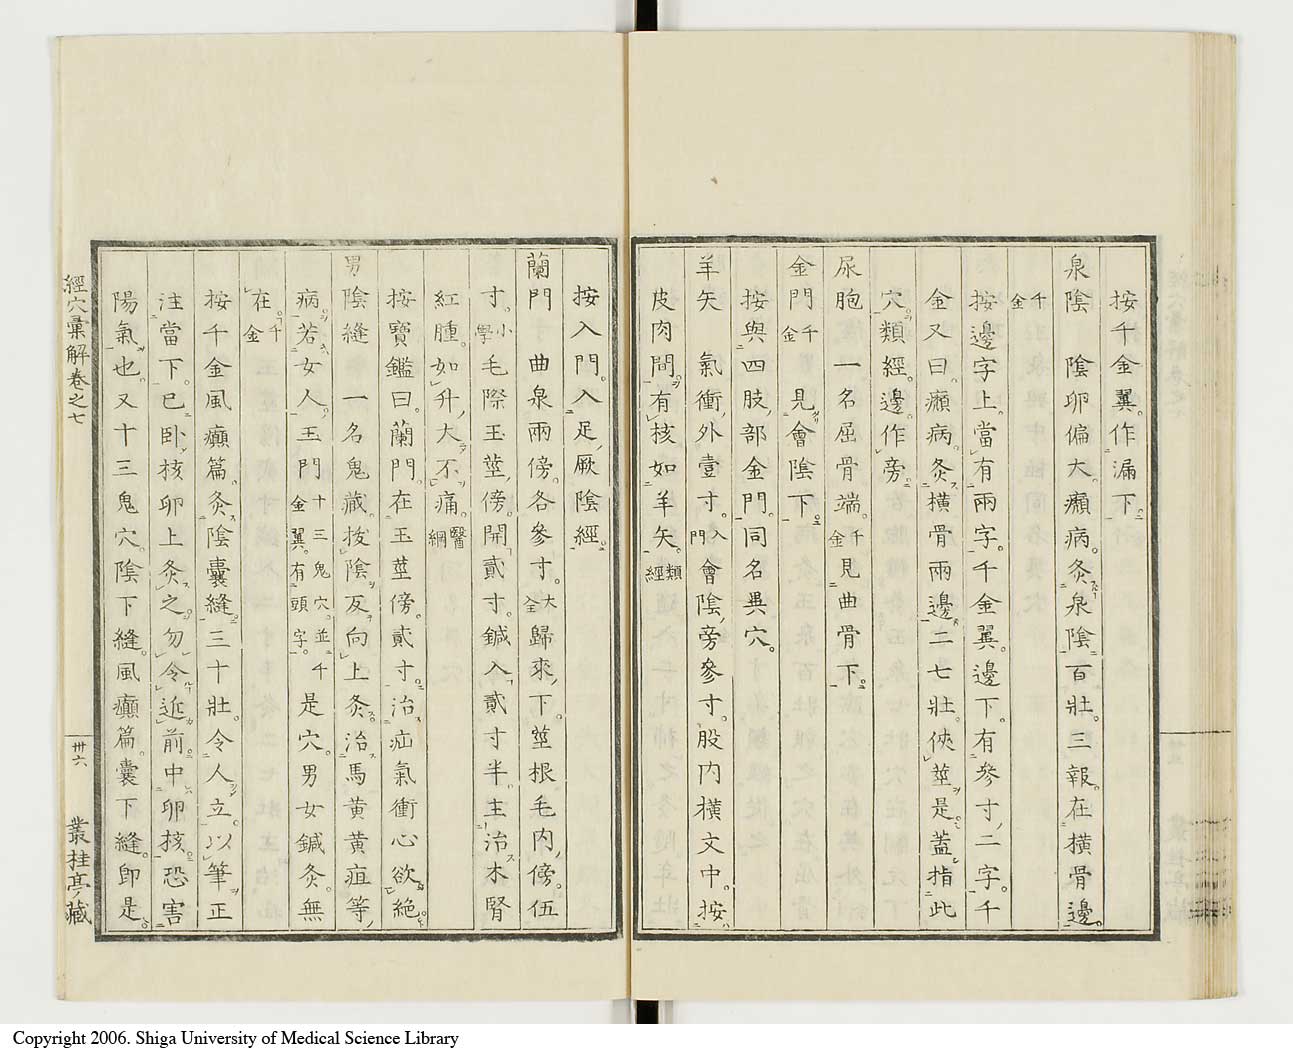 按千金翼作漏下
泉陰 陰卵偏大癩病灸泉陰百壯三報在橫骨邊
千金
按邊字上當有兩字千金翼邊下有參寸二字千
金又曰癩病灸橫骨兩邊二七壯俠莖是蓋指此
穴類經邊作旁
尿胞 一名屈骨端千金見曲骨下
金門千金 見會陰下
按與四肢部金門同名異穴
羊矢 氣衝外壹寸入門會陰旁參寸股內橫文中按
皮肉間有核如羊矢類經
按入門入足厥陰經
蘭門 曲泉兩傍各參寸大全歸來下莖根毛內傍伍
寸小學毛際玉莖傍開貳寸鍼入貳寸半主治木腎
紅腫如升大不痛醫綱
按寶鑑曰蘭門在玉莖傍貳寸治疝氣衝心欲絕
男陰縫 一名鬼藏拔陰反向上灸治馬黃黃疸等
病若女人玉門十三鬼穴並千金翼有頭字是穴男女鍼灸無
在千金
按千金風癲篇灸陰囊縫三十壯令人立以筆正
注當下已卧核卵上灸之勿令近前中卵核恐害
陽氣也又十三鬼穴陰下縫風癲篇囊下縫即是
經穴彙解卷之七
卅六
叢桂亭藏
Copyright 2006. Shiga University of Medical Science Library